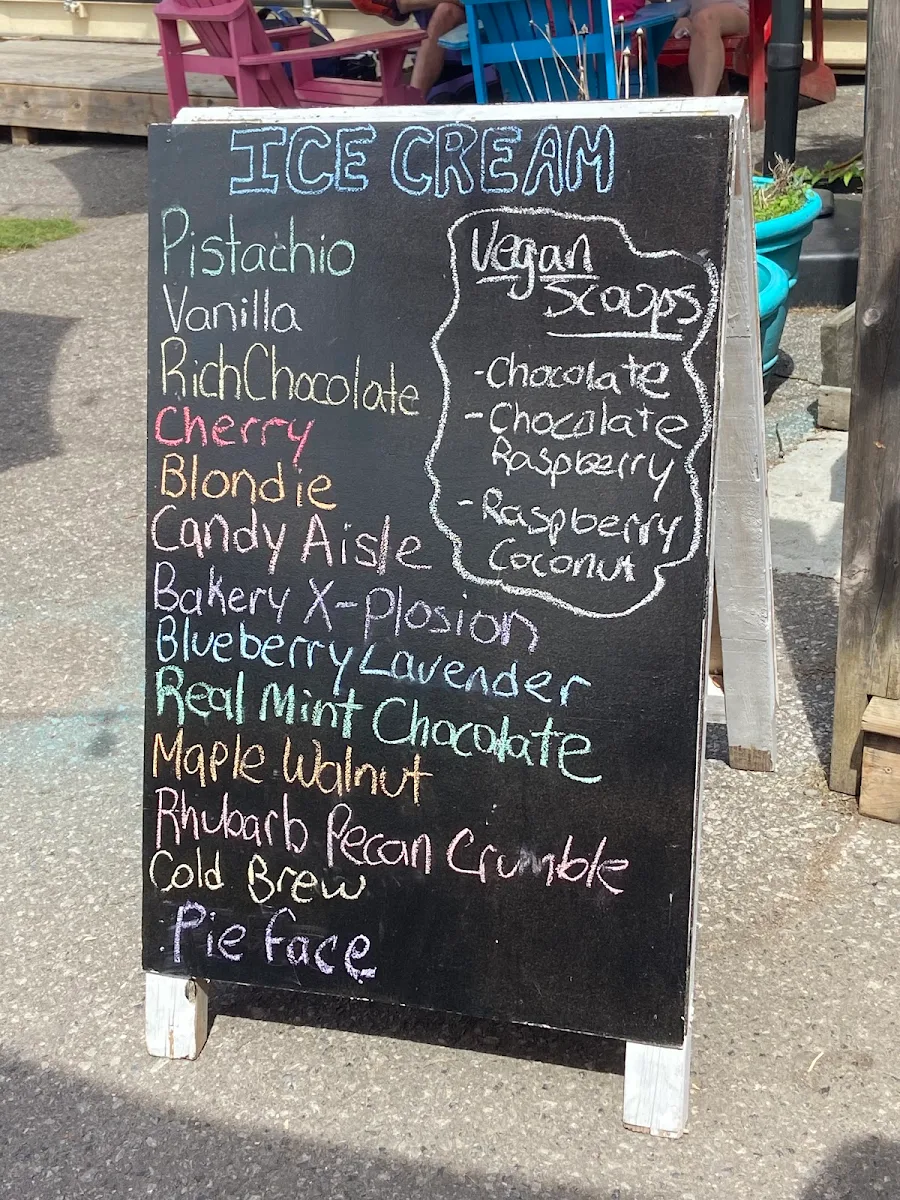 ICE CREAM
Pistachio
Vanilla
Rich Chocolate
Cherry
Blondie
Candy Aisle
Bakery X-plosion
Blueberry Lavender
Real Mint Chocolate
Maple Walnut
Rhubarb Pecan Crumble
Cold Brew
Pie Face
Vegan
Scoops
-Chocolate
-Chocolate
Raspberry
-Raspberry
Coconut